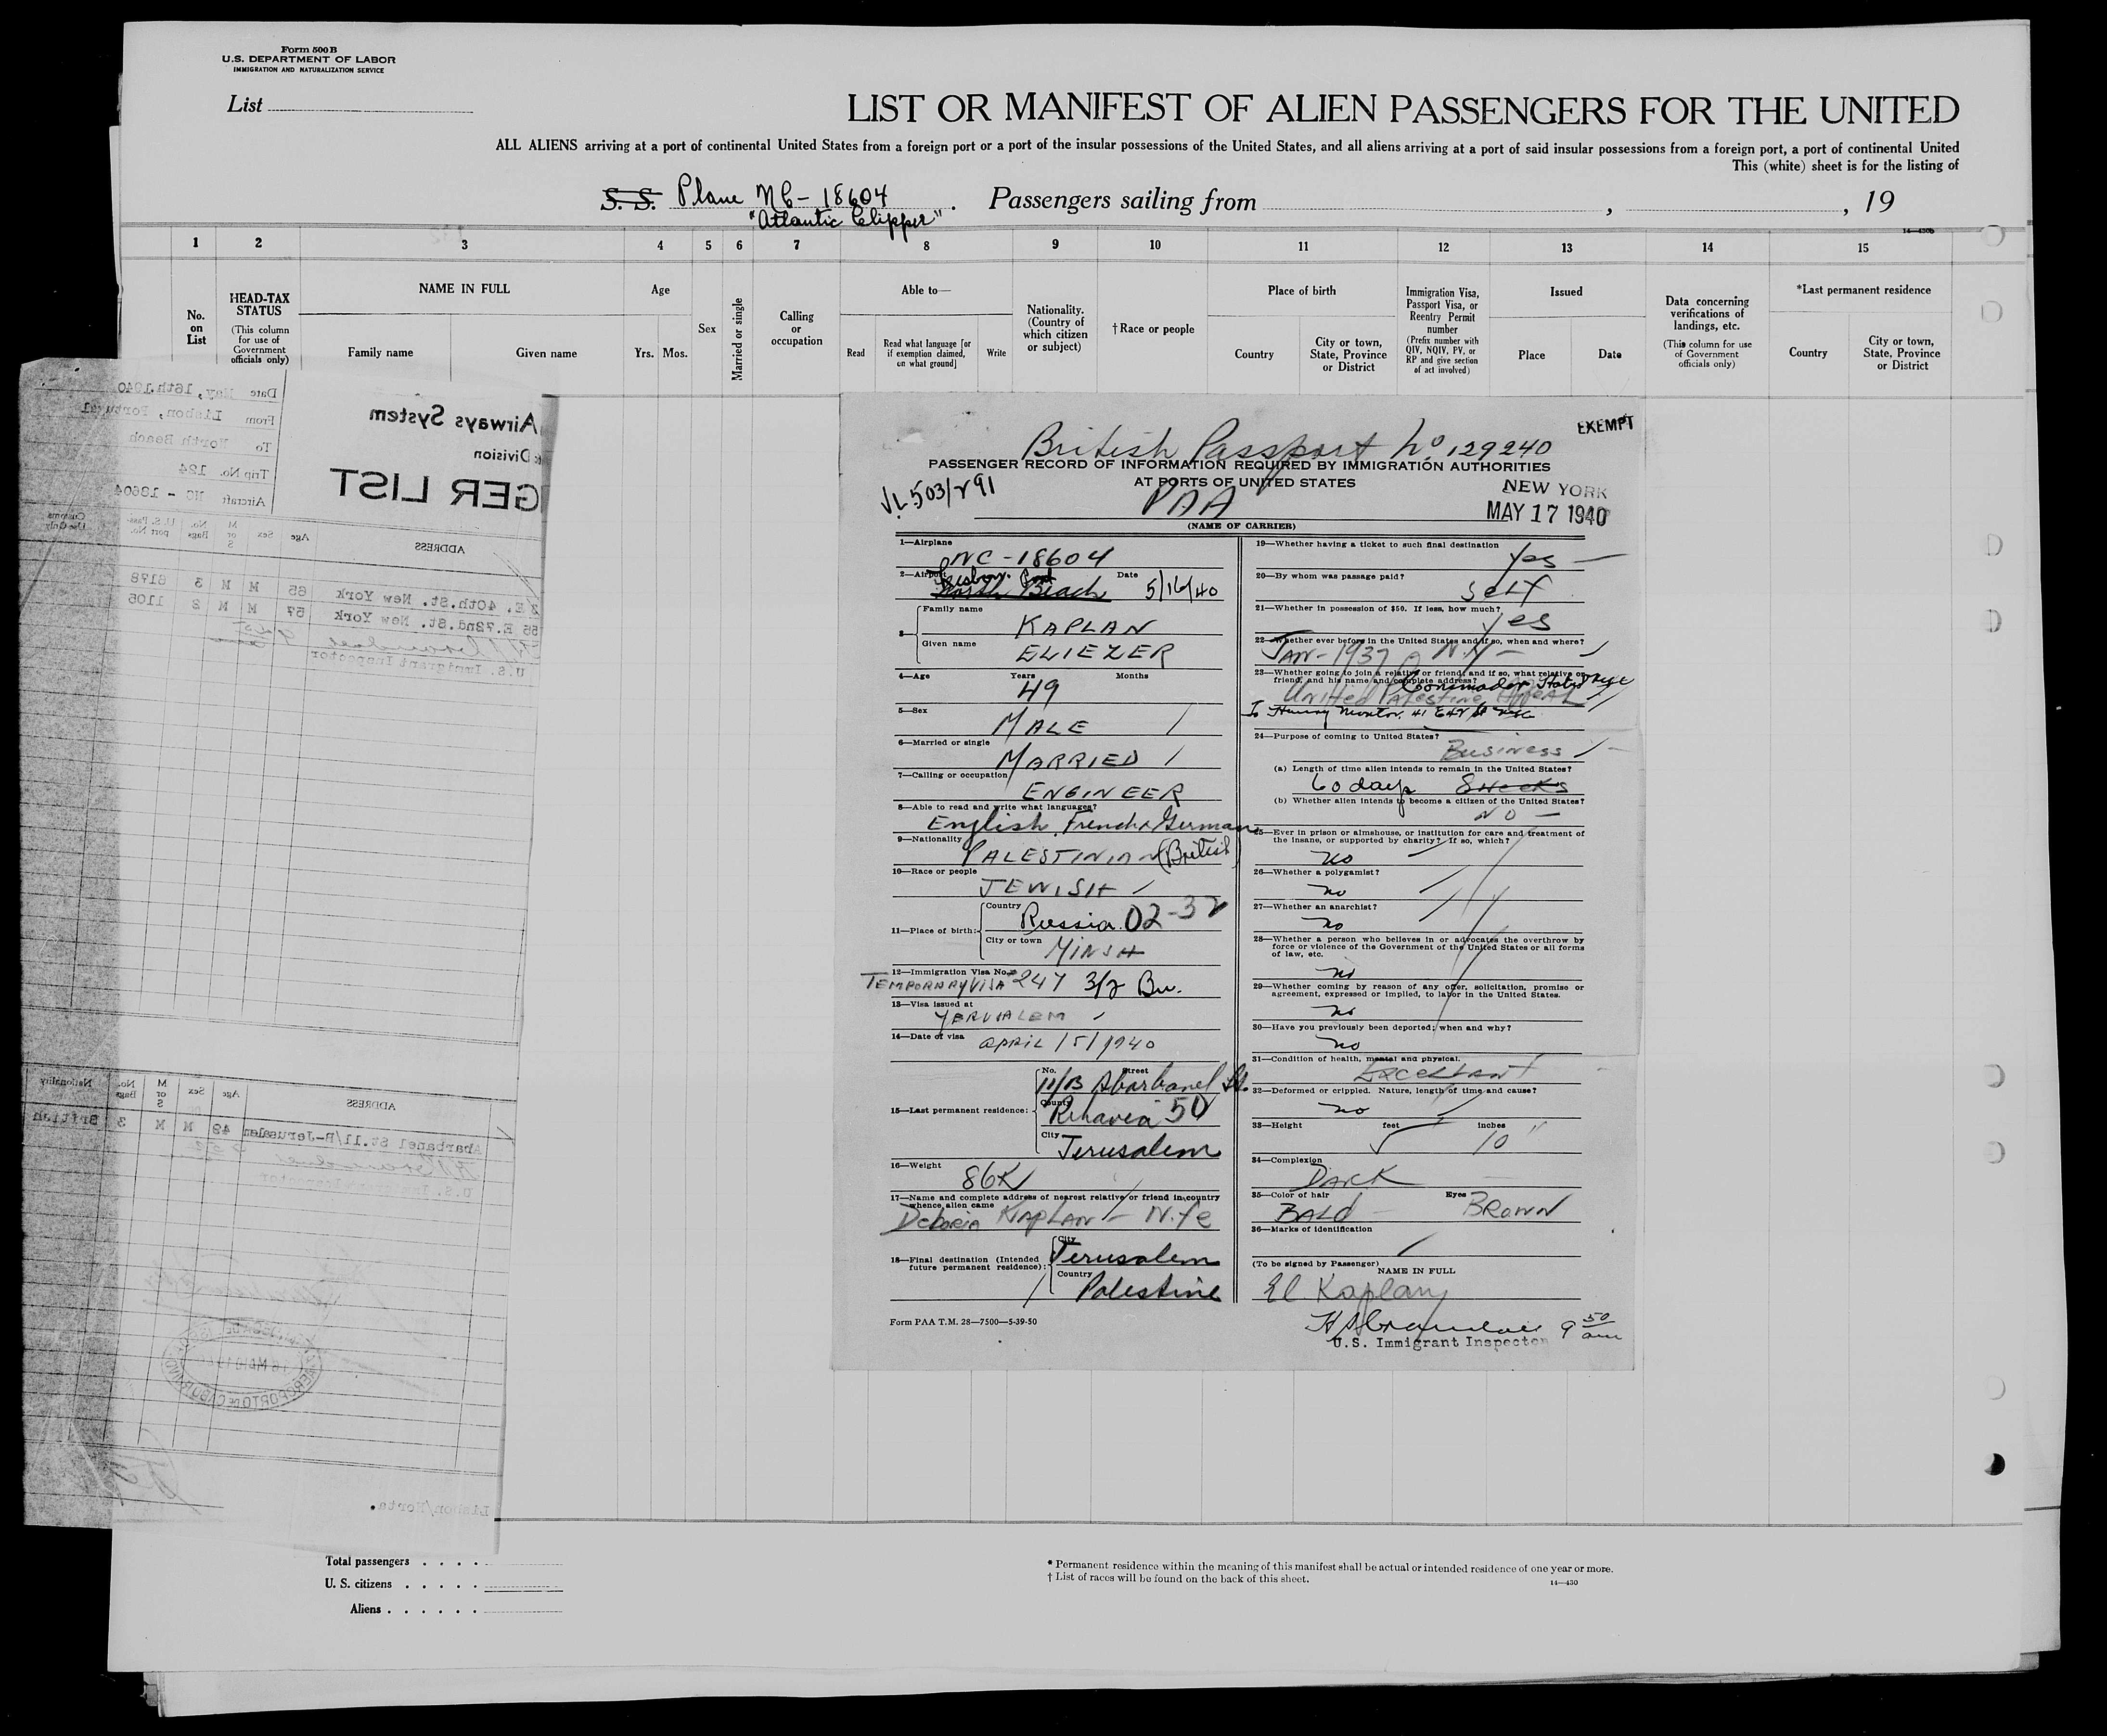 Form 500B
U.S. DEPARTMENT OF LABOR
IMMIGRATION AND NATURALIZATION SERVICE
List
LIST OR MANIFEST OF ALIEN PASSENGERS FOR THE UNITED
ALL ALIENS arriving at a port of continental United States from a foreign port or a port of the insular possessions of the United States, and all aliens arriving at a port of said insular possessions from a foreign port, a port of continental United
This (white) sheet is for the listing of
S. S. Plane NC-18604 . Passengers sailing from , , 19
"Atlantic Clipper"
14—430b
1 2 3 4 5 6 7 8 9 10 11 12 13 14 15
No. on List
HEAD-TAX STATUS
(This column for use of Government officials only)
NAME IN FULL
Family name Given name
Age
Yrs. Mos.
Sex
Married or single
Calling or occupation
Able to—
Read
Read what language [or if exemption claimed, on what ground]
Write
Nationality. (Country of which citizen or subject)
†Race or people
Place of birth
Country
City or town, State, Province or District
Immigration Visa, Passport Visa, or Reentry Permit number
(Prefix number with QIV, NQIV, PV, or RP and give section of act involved)
Issued
Place Date
Data concerning verifications of landings, etc.
(This column for use of Government officials only)
*Last permanent residence
Country
City or town, State, Province or District
Airways System
Division
GER LIST
Date May, 16th,1940
From Lisbon, Portugal
To North Beach
Trip No. 124
Aircraft NC - 18604
ADDRESS Age Sex M or S No. Bags U.S. Pass-port No. Customs Use Only
E. 40th.St. New York 65 M M 3 8178
E.72nd.St. New York 57 M M 2 1105
U.S. Immigrant Inspector
ADDRESS Age Sex M or S No. Bags Nationality
Abarbanel St.11/B-Jerusalem 49 M M 3 British
U.S. Immigrant Inspector
Lisbon/Horta.
EXEMPT
British Passport No. 129240
PASSENGER RECORD OF INFORMATION REQUIRED BY IMMIGRATION AUTHORITIES
AT PORTS OF UNITED STATES
PAA
NEW YORK
MAY 17 1940
(NAME OF CARRIER)
1—Airplane NC-18604
2—Airport Lisbon. Port North Beach Date 5/16/40
3—
Family name KAPLAN
Given name ELIEZER
4—Age Years 49 Months
5—Sex MALE
6—Married or single MARRIED
7—Calling or occupation ENGINEER
8—Able to read and write what languages?
English, French & German
9—Nationality PALESTINIAN (British)
10—Race or people JEWISH
11—Place of birth:
Country Russia 02-32
City or town MINSK
12—Immigration Visa No.
TEMPORARY VISA #247 3/2 Bu.
13—Visa issued at JERUSALEM
14—Date of visa APRIL/5/1940
15—Last permanent residence:
No. 11/B Street Abarbanel St.
County Rehavia 50
City Jerusalem
16—Weight 86K
17—Name and complete address of nearest relative or friend in country whence alien came
Deboria KAPLAN - Wife
18—Final destination (Intended future permanent residence):
City Jerusalem
Country Palestine
Form PAA T.M. 28—7500—5-39-50
19—Whether having a ticket to such final destination Yes
20—By whom was passage paid? SELF
21—Whether in possession of $50. If less, how much? yes
22—Whether ever before in the United States and if so, when and where?
JAN-1937 N.Y
23—Whether going to join a relative or friend; and if so, what relative or friend, and his name and complete address?
Commodor Hotel NYC
United Palestine Appeal
To Henry Montor, 41 E 42 St NYC
24—Purpose of coming to United States? Business
(a) Length of time alien intends to remain in the United States?
60 days 8 weeks
(b) Whether alien intends to become a citizen of the United States?
NO
25—Ever in prison or almshouse, or institution for care and treatment of the insane, or supported by charity? If so, which?
no
26—Whether a polygamist?
no
27—Whether an anarchist?
no
28—Whether a person who believes in or advocates the overthrow by force or violence of the Government of the United States or all forms of law, etc.
no
29—Whether coming by reason of any offer, solicitation, promise or agreement, expressed or implied, to labor in the United States.
no
30—Have you previously been deported; when and why?
no
31—Condition of health, mental and physical.
Excellant
32—Deformed or crippled. Nature, length of time and cause?
no
33—Height feet 5 inches 10"
34—Complexion DARK
35—Color of hair BALD Eyes BROWN
36—Marks of identification
(To be signed by Passenger)
NAME IN FULL
El. Kaplan
U.S. Immigrant Inspector
9 50 am
Total passengers . . . .
U. S. citizens . . . . .
Aliens . . . . . .
* Permanent residence within the meaning of this manifest shall be actual or intended residence of one year or more.
† List of races will be found on the back of this sheet.
14—430